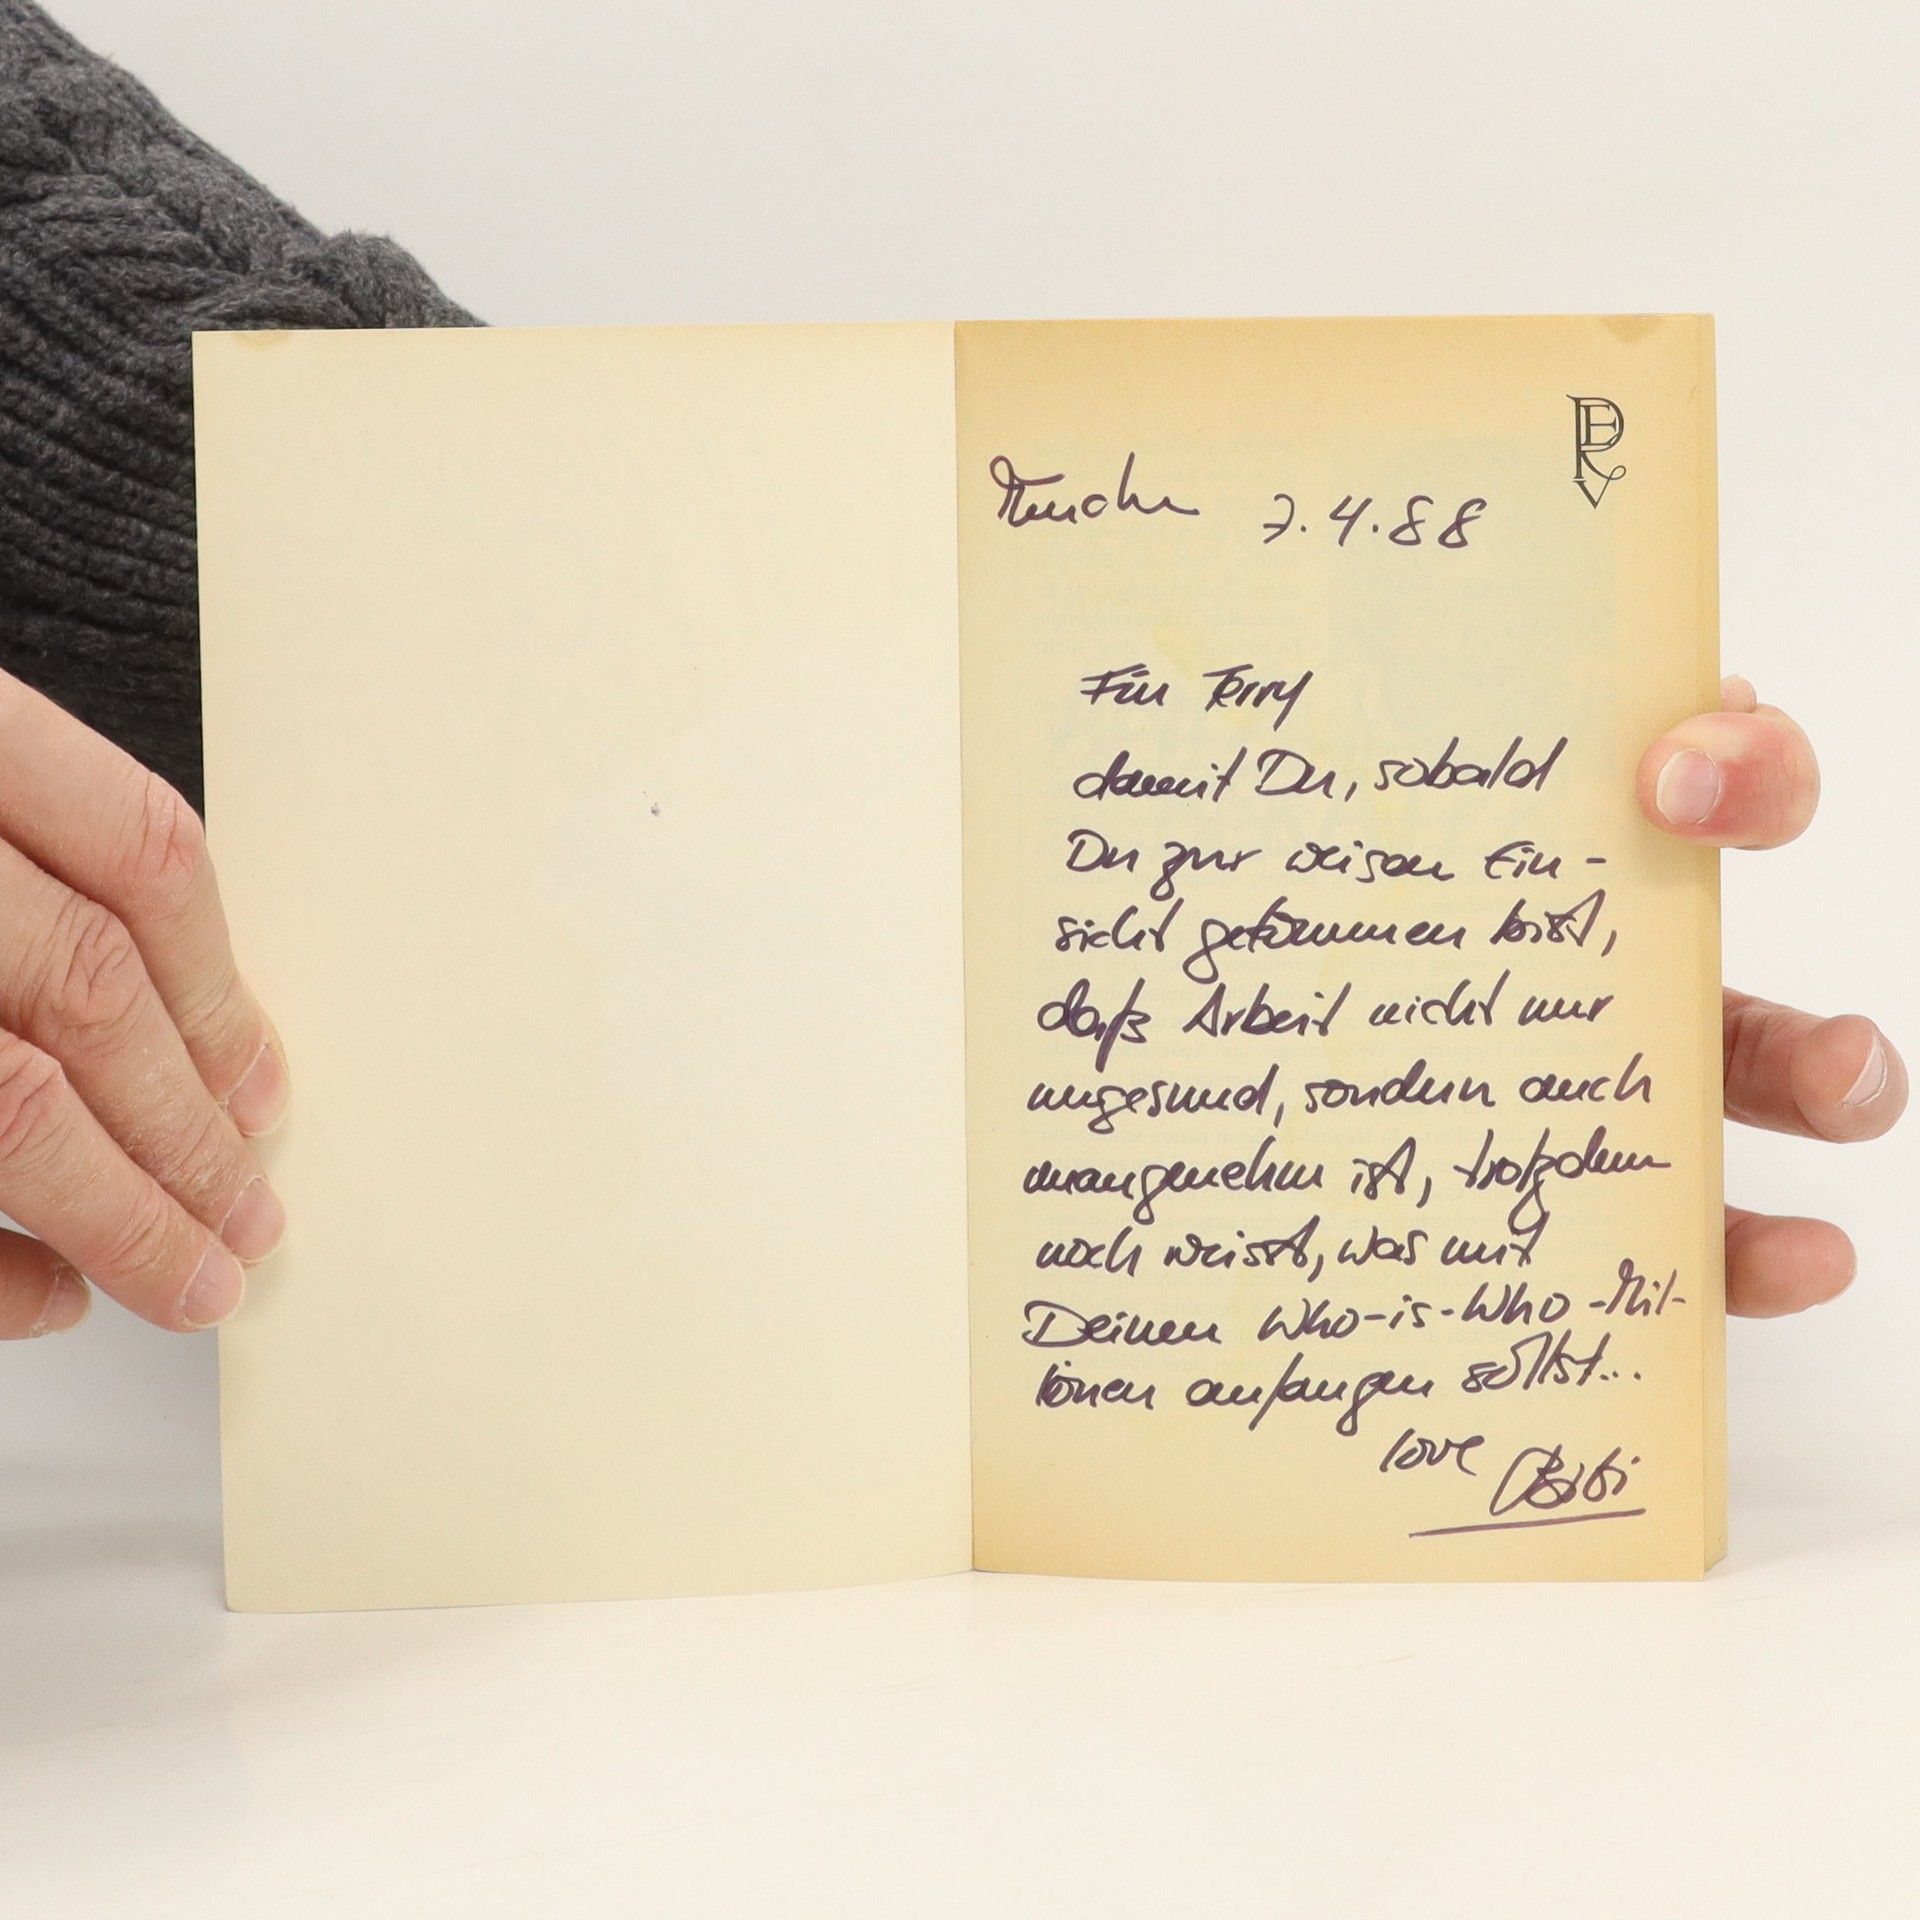 PEV
München 7.4.88
Für Terry
damit Du, sobald
Du zur weisen Ein-
sicht gekommen bist,
daß Arbeit nicht nur
ungesund, sondern auch
unangenehm ist, trotzdem
noch weisst, was mit
Deinen Who-is-Who-Mil-
ionen anfangen sollst...
love Bibi